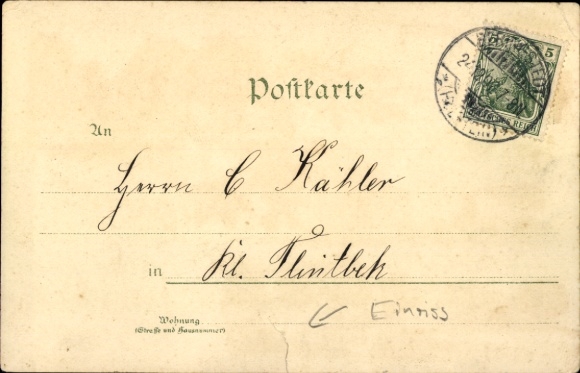 Postkarte
5
An
Herrn C Kähler
in Kl. Flintbek
Einriss
Wohnung
(Straße und Hausnummer)